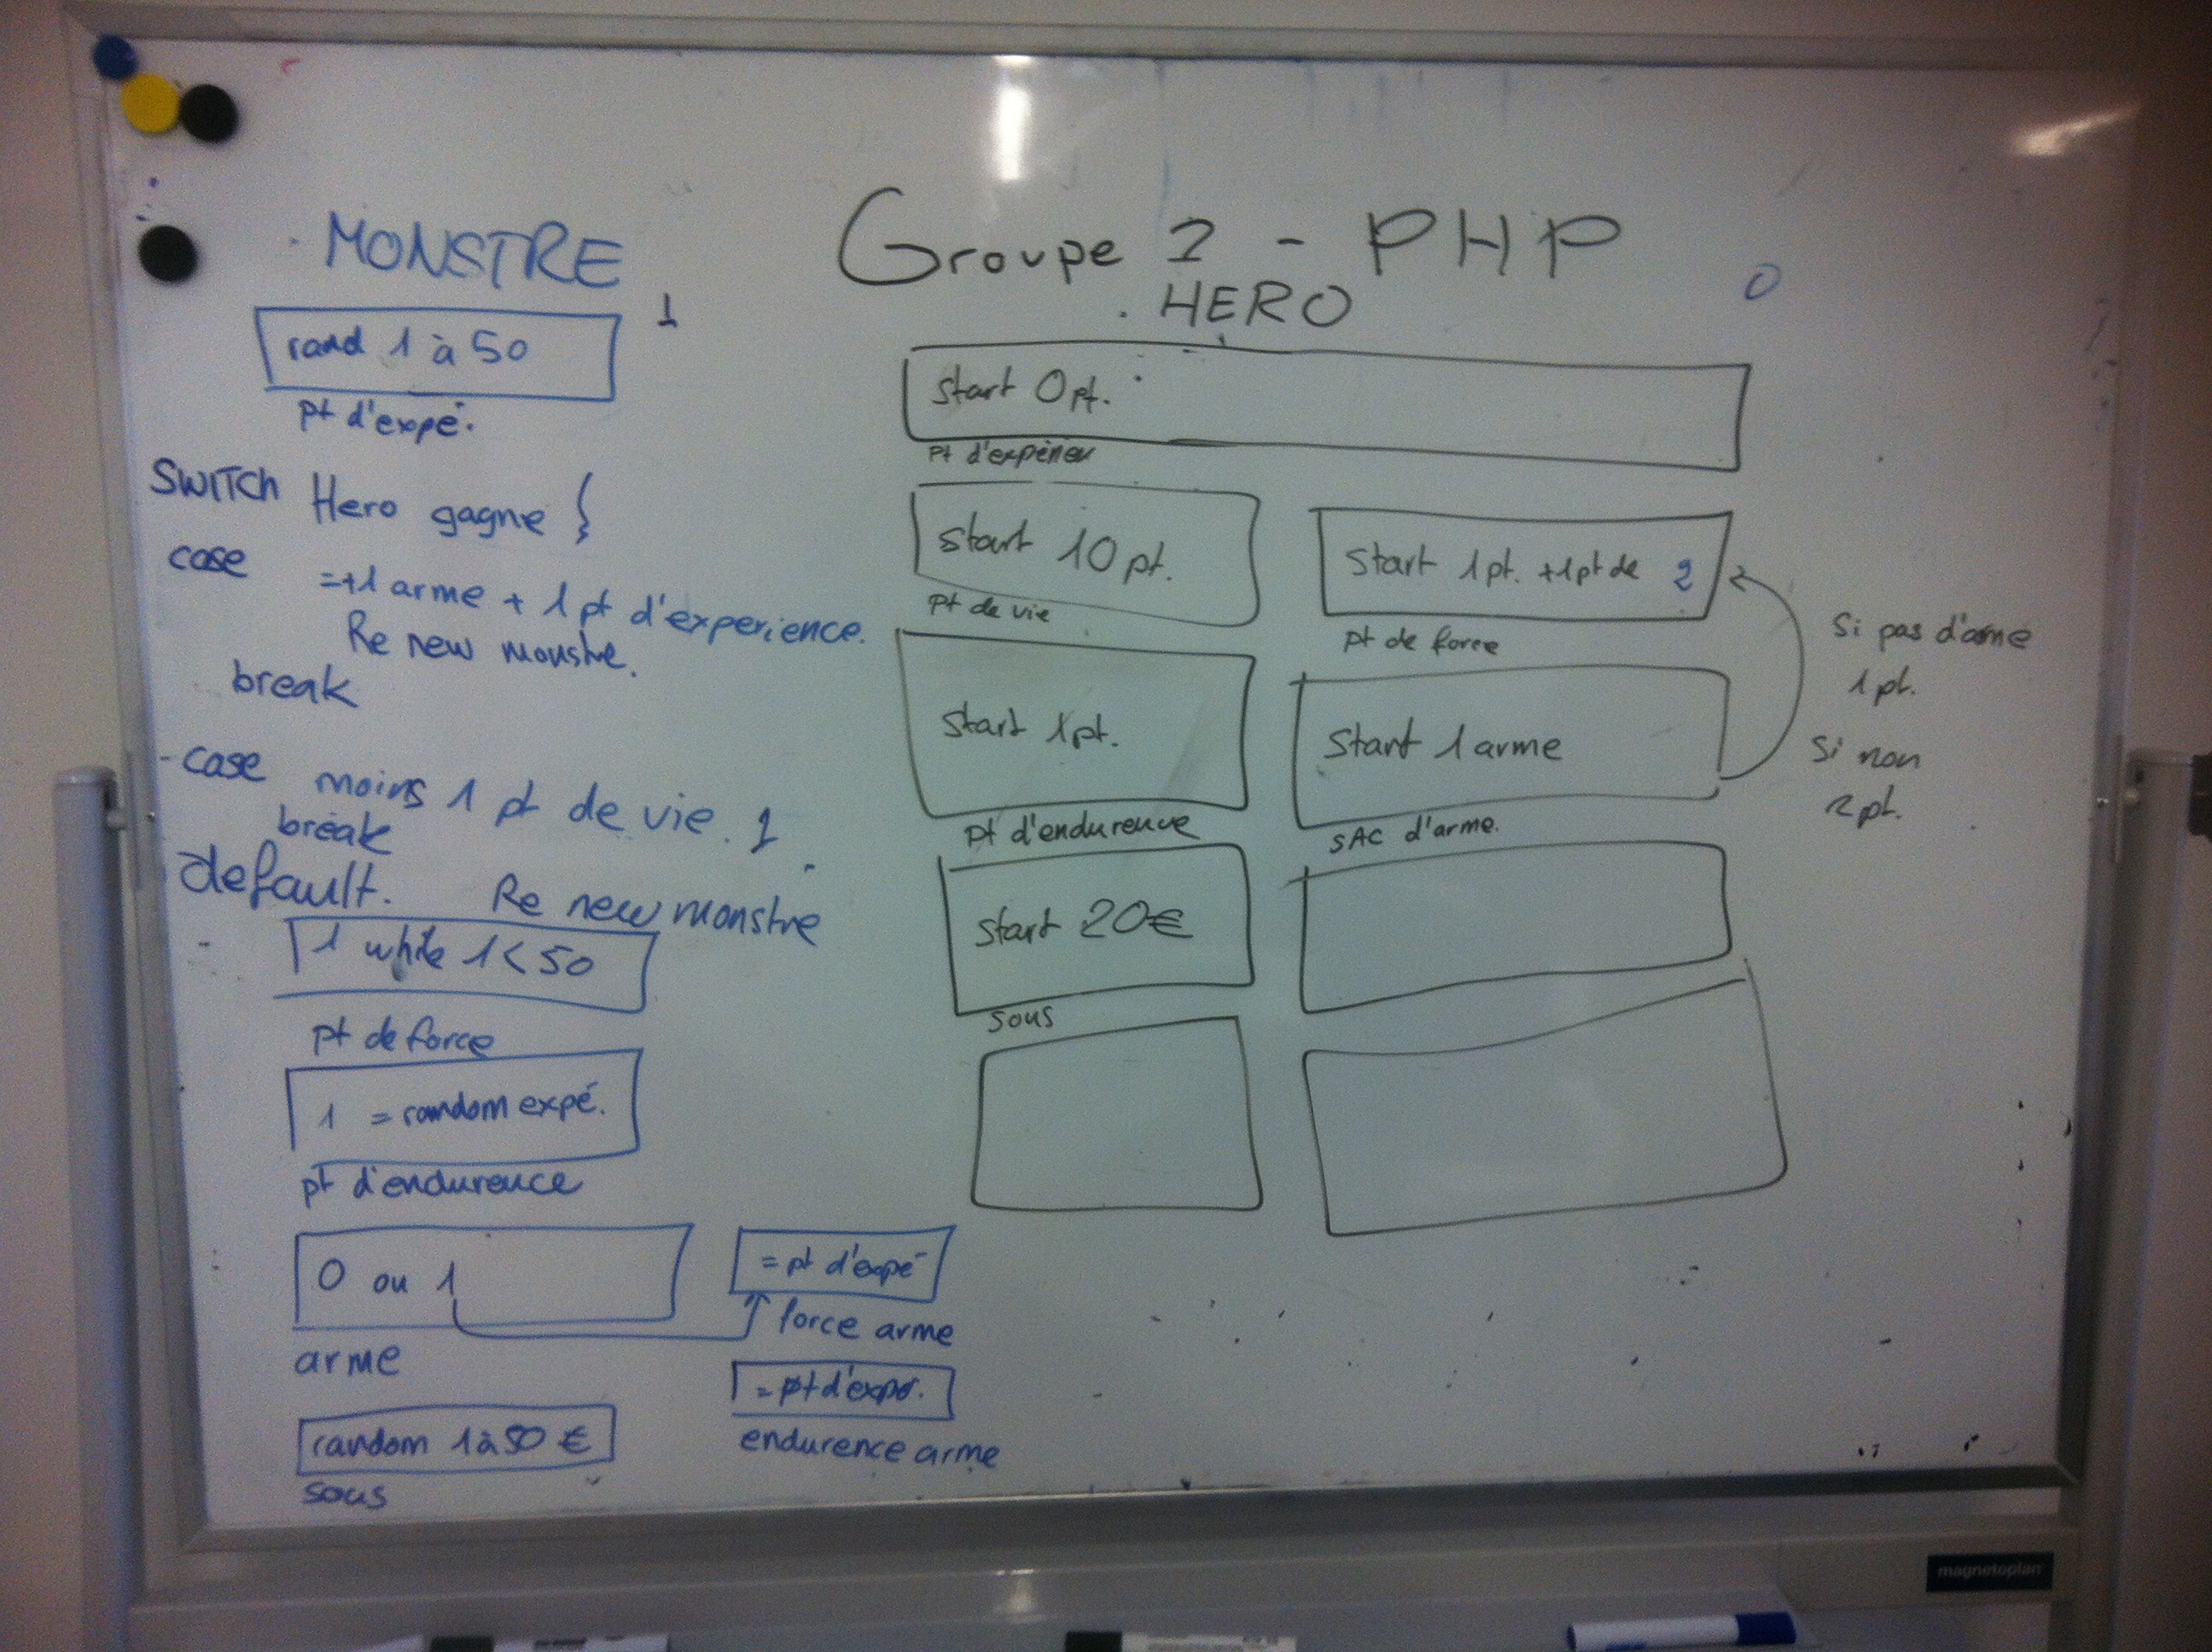 MONSTRE
rand 1 à 50
pt d'expé.
1
SWITCH Hero gagne {
case =+1 arme + 1 pt d'experience.
Re new monstre.
break
case moins 1 pt de vie. 1
break
default. Re new monstre
1 while 1 < 50
pt de force
1 = random expé.
pt d'endurence
0 ou 1
arme
= pt d'expé
force arme
= pt d'exper.
endurence arme
random 1 à 50 €
sous
Groupe 2 - PHP
HERO
0
Start 0 pt.
Pt d'expérien
Start 10 pt.
Pt de vie
Start 1 pt. +1 pt de 2
pt de force
Si pas d'arme
1 pt.
Si non
2 pt.
Start 1 pt.
pt d'endurence
Start 1 arme
SAC d'arme.
Start 20€
sous
magnetoplan